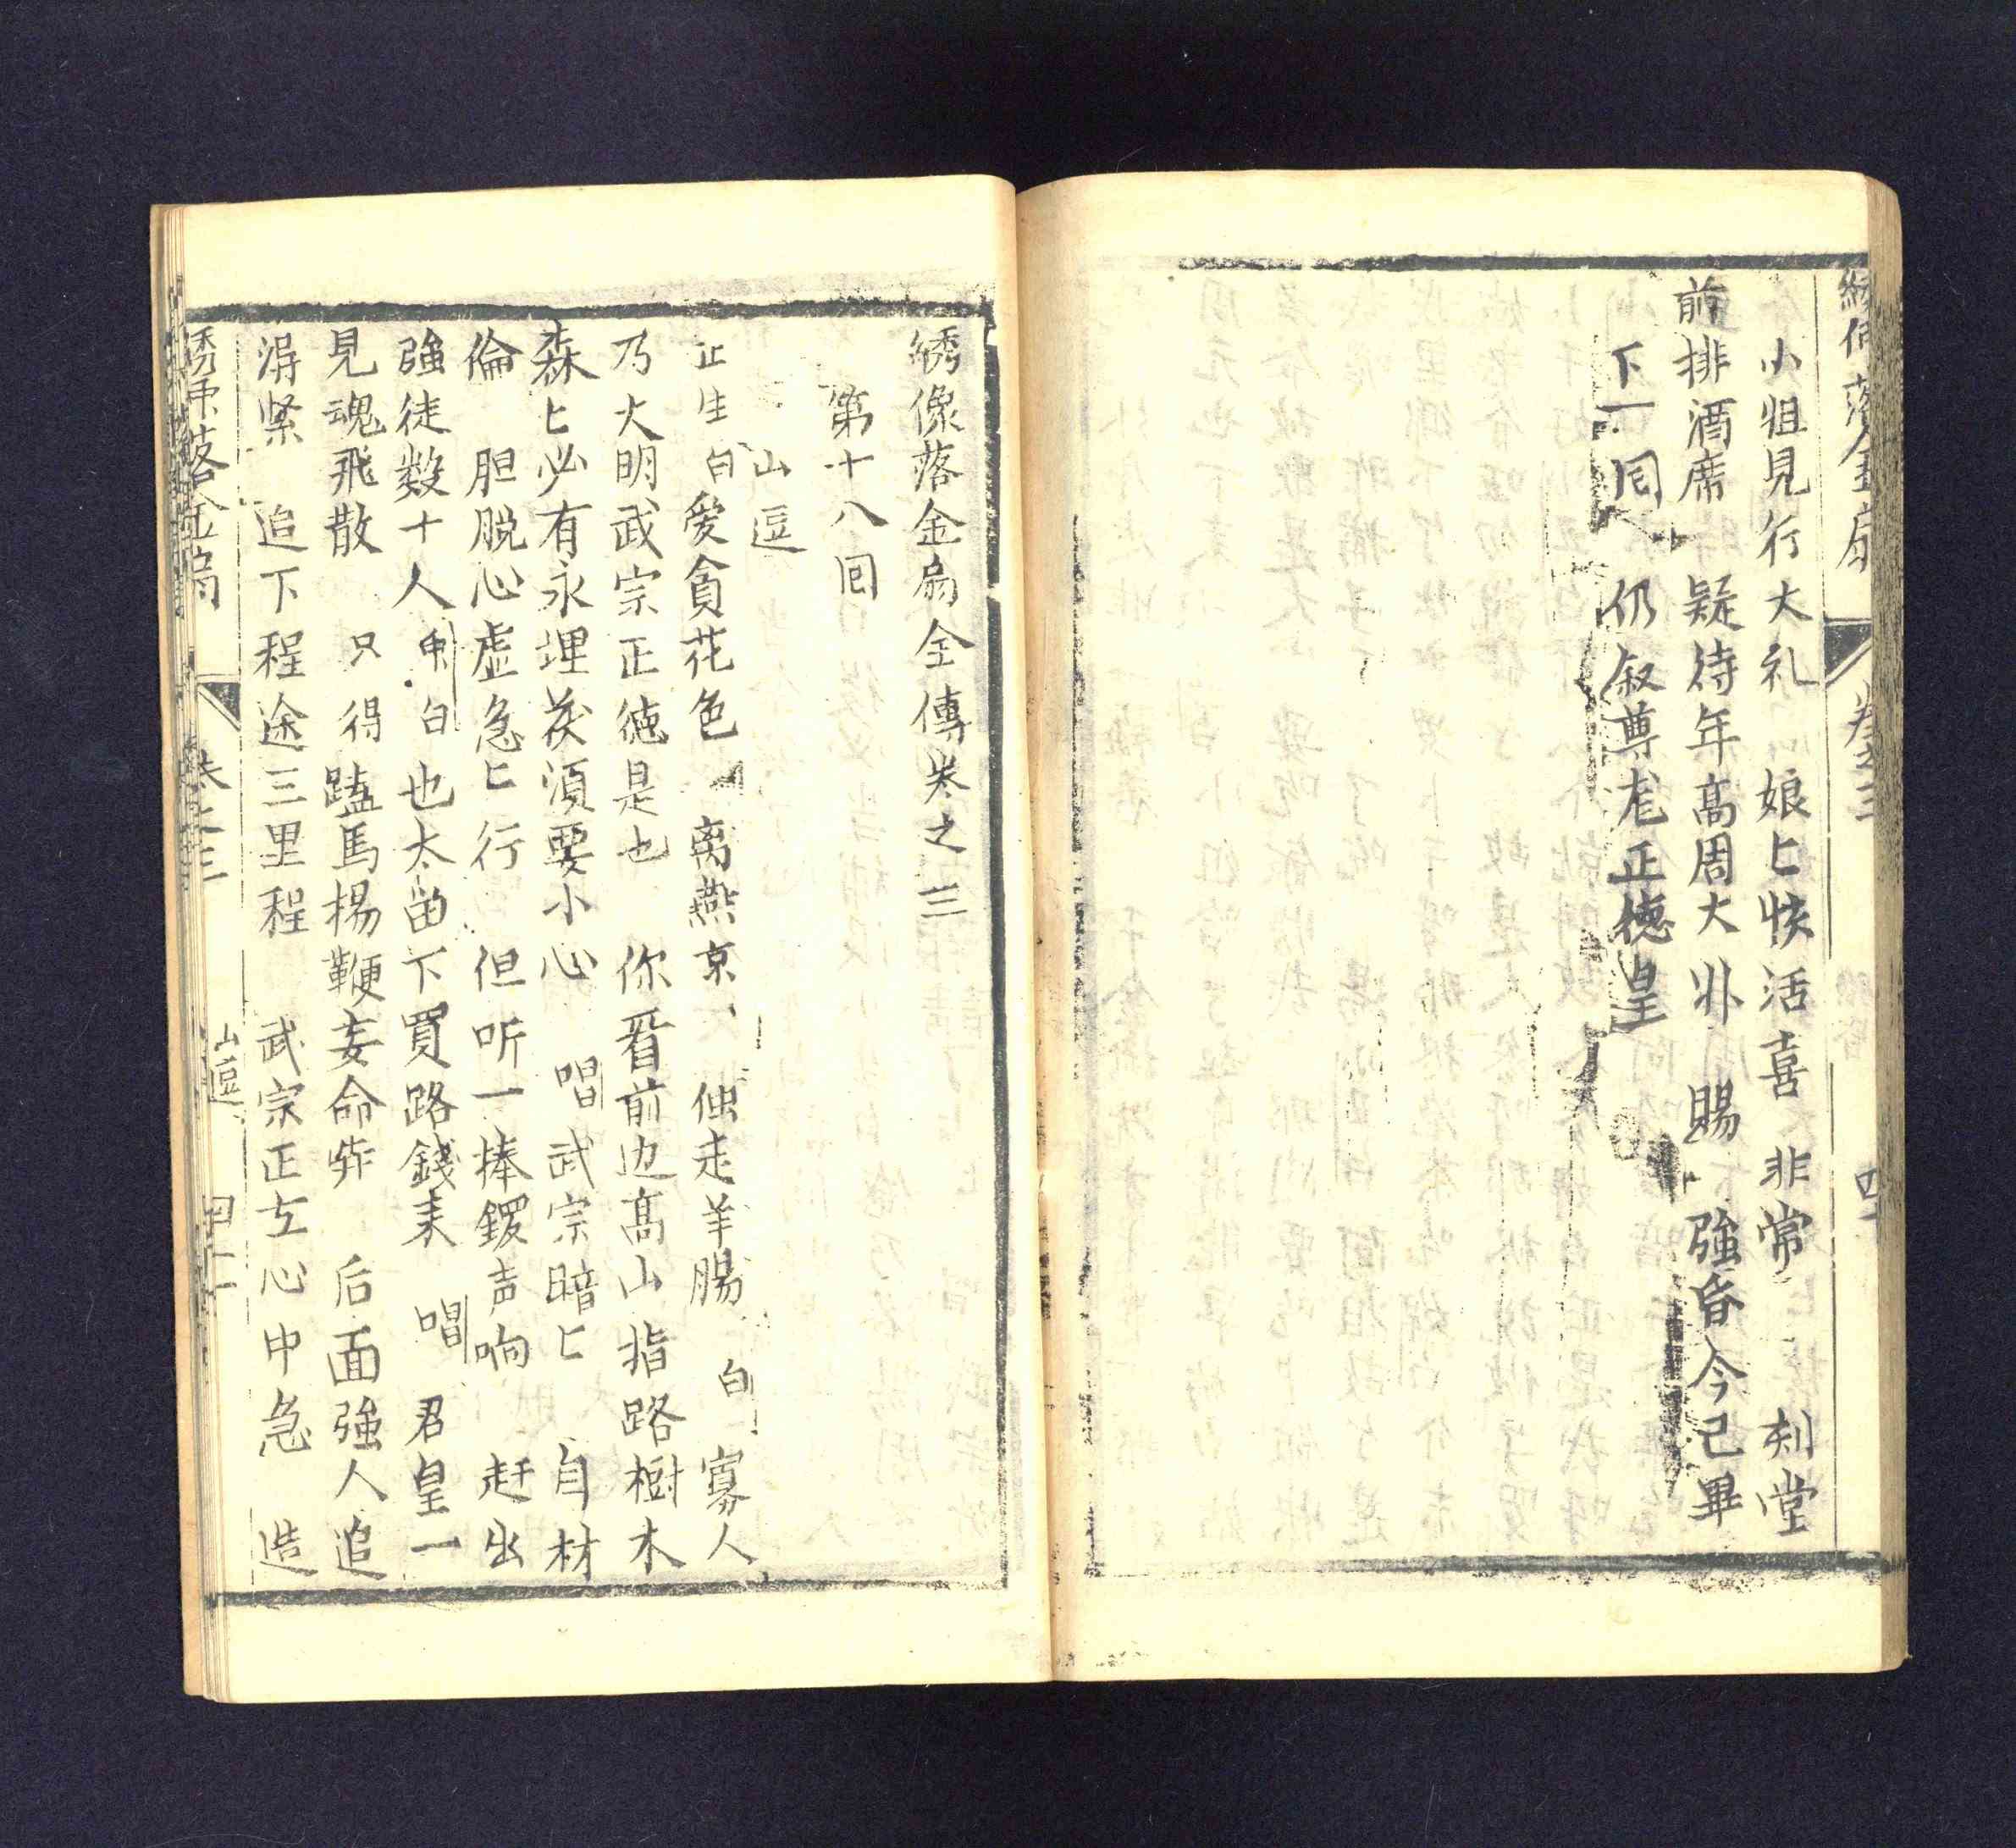 小姐見行大礼 娘匕快活喜非常 刻堂
前排酒席 疑待年高周大 賜 強昏今已畢
下一囘 仍叙尊尨正德皇
綉像落金扇全傳卷之三
第十八囘
山逗
正生白 愛貪花色 离燕京 独走羊腸 白 寡人
乃大明武宗正德是也 你看前边高山指路樹木
森匕必有永埋茯湏要小心 唱 武宗暗匕自材
倫 胆脱心虚急匕行 但听一捧鑼声响 赶出
強徒数十人 白 也太畄下買路錢来 唱 君皇一
見魂飛散 只得磕馬楊鞭妄命奔 后面強人追
淂紧 追下程途三里程 武宗正在心中急 造
落金扇
卷之三
山逗
四十二